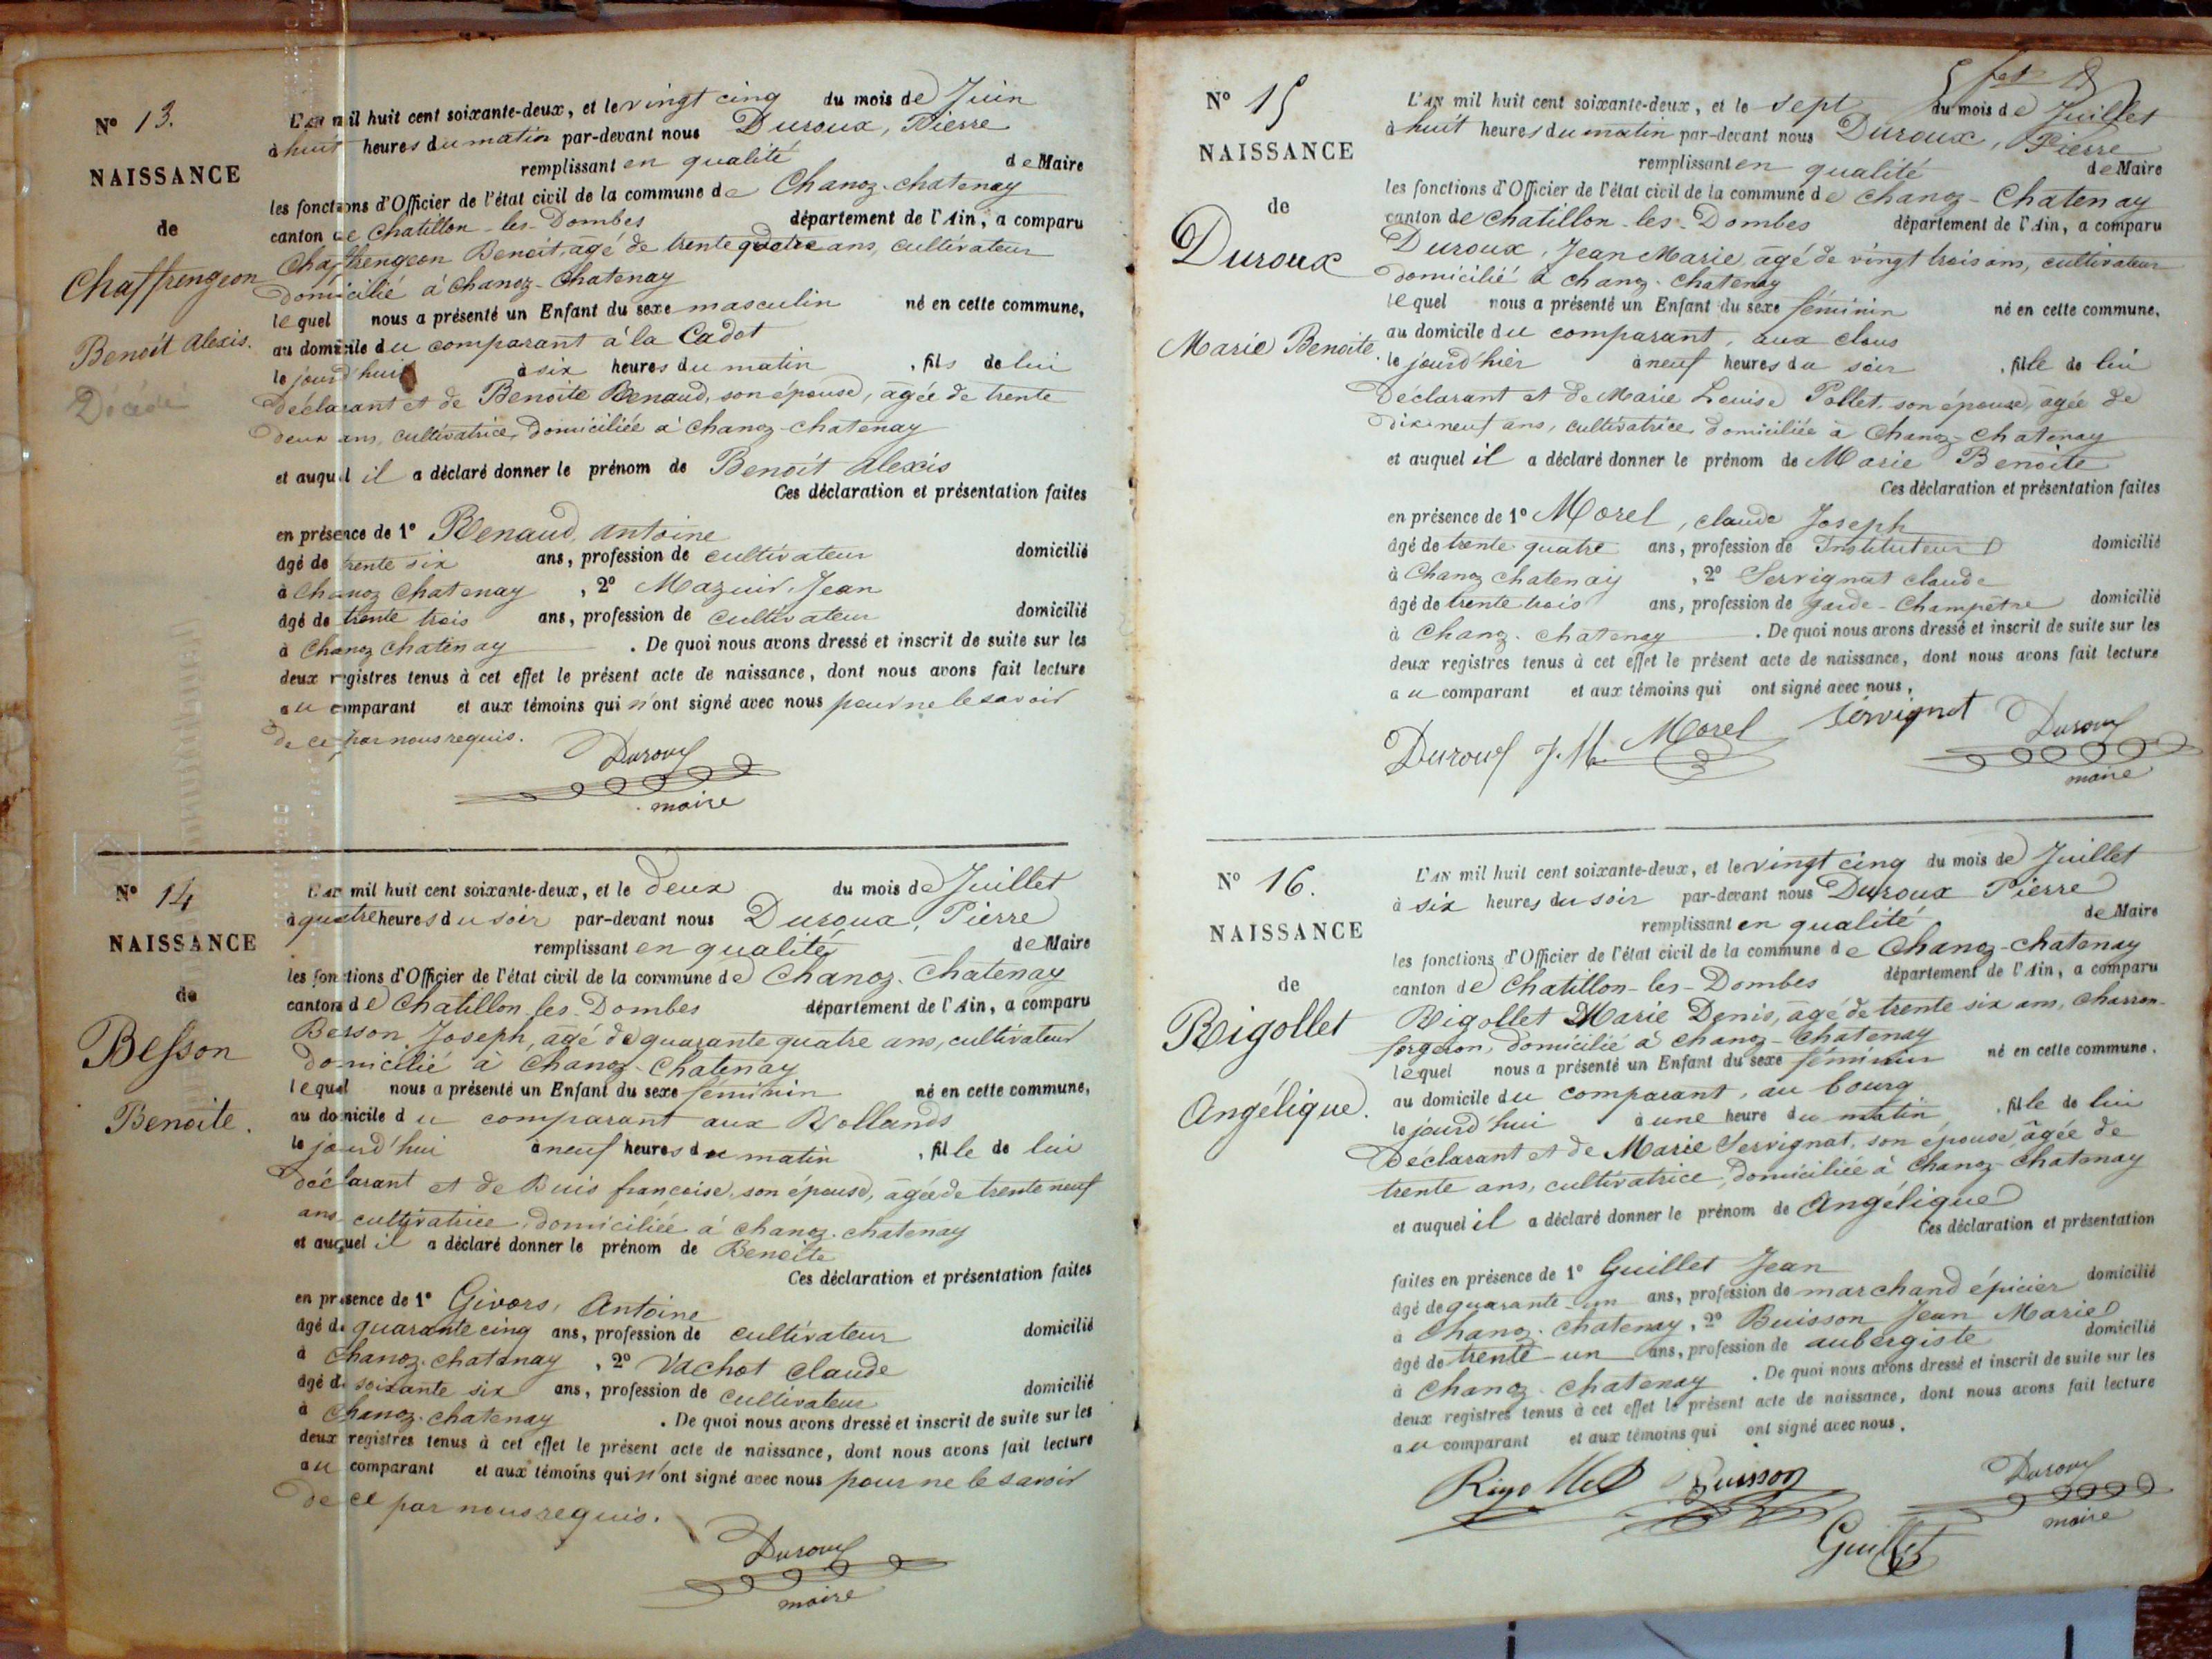 N° 13.
NAISSANCE
de
Chaffrengeon
Benoit Alexis.
Décédé
L'an mil huit cent soixante-deux, et le vingt cinq du mois de Juin
à huit heures du matin par-devant nous Duroux, Pierre
remplissant en qualité de Maire
les fonctions d'Officier de l'état civil de la commune de Chanoz-chatenay
canton de Chatillon-les-Dombes département de l'Ain, a comparu
Chaffrengeon Benoit, agé de trente quatre ans, cultivateur
domicilié à Chanoz-Chatenay
lequel nous a présenté un Enfant du sexe masculin né en cette commune,
au domicile du comparant à la Cadot
le jourd'hui à six heures du matin , fils de lui
Déclarant et de Benoite Renaud, son épouse, agée de trente
deux ans, cultivatrice, domiciliée à Chanoz-chatenay
et auquel il a déclaré donner le prénom de Benoit Alexis
Ces déclaration et présentation faites
en présence de 1° Renaud, Antoine
âgé de trente six ans, profession de cultivateur domicilié
à Chanoz Chatenay , 2° Mazuir, Jean
âgé de trente trois ans, profession de cultivateur domicilié
à Chanoz chatenay . De quoi nous avons dressé et inscrit de suite sur les
deux registres tenus à cet effet le présent acte de naissance, dont nous avons fait lecture
au comparant et aux témoins qui n'ont signé avec nous pour ne le savoir
de ce par nous requis.
Duroux
maire
N° 14
NAISSANCE
de
Besson
Benoite.
L'an mil huit cent soixante-deux, et le deux du mois de Juillet
à quatre heures du soir par-devant nous Duroux, Pierre
remplissant en qualité de Maire
les fonctions d'Officier de l'état civil de la commune de Chanoz-Chatenay
canton de Chatillon-les-Dombes département de l'Ain, a comparu
Besson Joseph, agé de quarante quatre ans, cultivateur
domicilié à Chanoz-Chatenay
lequel nous a présenté un Enfant du sexe féminin né en cette commune,
au domicile du comparant aux Rollands
le jourd'hui à neuf heures du matin , fille de lui
déclarant et de Buis françoise, son épouse, agée de trente neuf
ans cultivatrice, domiciliée à chanoz-chatenay
et auquel il a déclaré donner le prénom de Benoite
Ces déclaration et présentation faites
en présence de 1° Givors, Antoine
âgé de quarante cinq ans, profession de cultivateur domicilié
à Chanoz-chatenay , 2° Vachot claude
âgé de soixante six ans, profession de cultivateur domicilié
à Chanoz-chatenay . De quoi nous avons dressé et inscrit de suite sur les
deux registres tenus à cet effet le présent acte de naissance, dont nous avons fait lecture
au comparant et aux témoins qui n'ont signé avec nous pour ne le savoir
de ce par nous requis.
Duroux
maire
N° 15
NAISSANCE
de
Duroux
Marie Benoite.
L'an mil huit cent soixante-deux, et le sept du mois de Juillet
à huit heures du matin par-devant nous Duroux, Pierre
remplissant en qualité de Maire
les fonctions d'Officier de l'état civil de la commune de chanoz-Chatenay
canton de Chatillon-les-Dombes département de l'Ain, a comparu
Duroux, Jean Marie, agé de vingt trois ans, cultivateur
domicilié à chanoz-chatenay
lequel nous a présenté un Enfant du sexe féminin né en cette commune,
au domicile du comparant, aux clous
le jourd'hier à neuf heures du soir , fille de lui
Déclarant et de Marie Louise Pollet, son épouse, agée de
dix neuf ans, cultivatrice, domiciliée à Chanoz-chatenay
et auquel il a déclaré donner le prénom de Marie Benoite
Ces déclaration et présentation faites
en présence de 1° Morel, claude Joseph
âgé de trente quatre ans, profession de Instituteur domicilié
à Chanoz chatenay , 2° Servignat claude
âgé de trente trois ans, profession de garde-Champêtre domicilié
à Chanoz-chatenay . De quoi nous avons dressé et inscrit de suite sur les
deux registres tenus à cet effet le présent acte de naissance, dont nous avons fait lecture
au comparant et aux témoins qui ont signé avec nous.
Duroux J. M. Morel Servignat Duroux
maire
N° 16.
NAISSANCE
de
Rigollet
Angélique.
L'an mil huit cent soixante-deux, et le vingt cinq du mois de Juillet
à six heures du soir par-devant nous Duroux Pierre
remplissant en qualité de Maire
les fonctions d'Officier de l'état civil de la commune de Chanoz-chatenay
canton de Chatillon-les-Dombes département de l'Ain, a comparu
Rigollet Marie Denis, agé de trente six ans, charron-
forgeron, domicilié à chanoz-chatenay
lequel nous a présenté un Enfant du sexe féminin né en cette commune.
au domicile du comparant, au bourg
le jourd'hui à une heure du matin , fille de lui
Déclarant et de Marie Servignat, son épouse, agée de
trente ans, cultivatrice, domiciliée à chanoz-chatenay
et auquel il a déclaré donner le prénom de Angélique
Ces déclaration et présentation
faites en présence de 1° Guillet Jean
âgé de quarante-un ans, profession de marchand épicier domicilié
à Chanoz-chatenay, 2° Buisson Jean Marie
âgé de trente-un ans, profession de aubergiste domicilié
à Chanoz-chatenay . De quoi nous avons dressé et inscrit de suite sur les
deux registres tenus à cet effet le présent acte de naissance, dont nous avons fait lecture
au comparant et aux témoins qui ont signé avec nous.
Rigollet Buisson Duroux
maire
Guillet